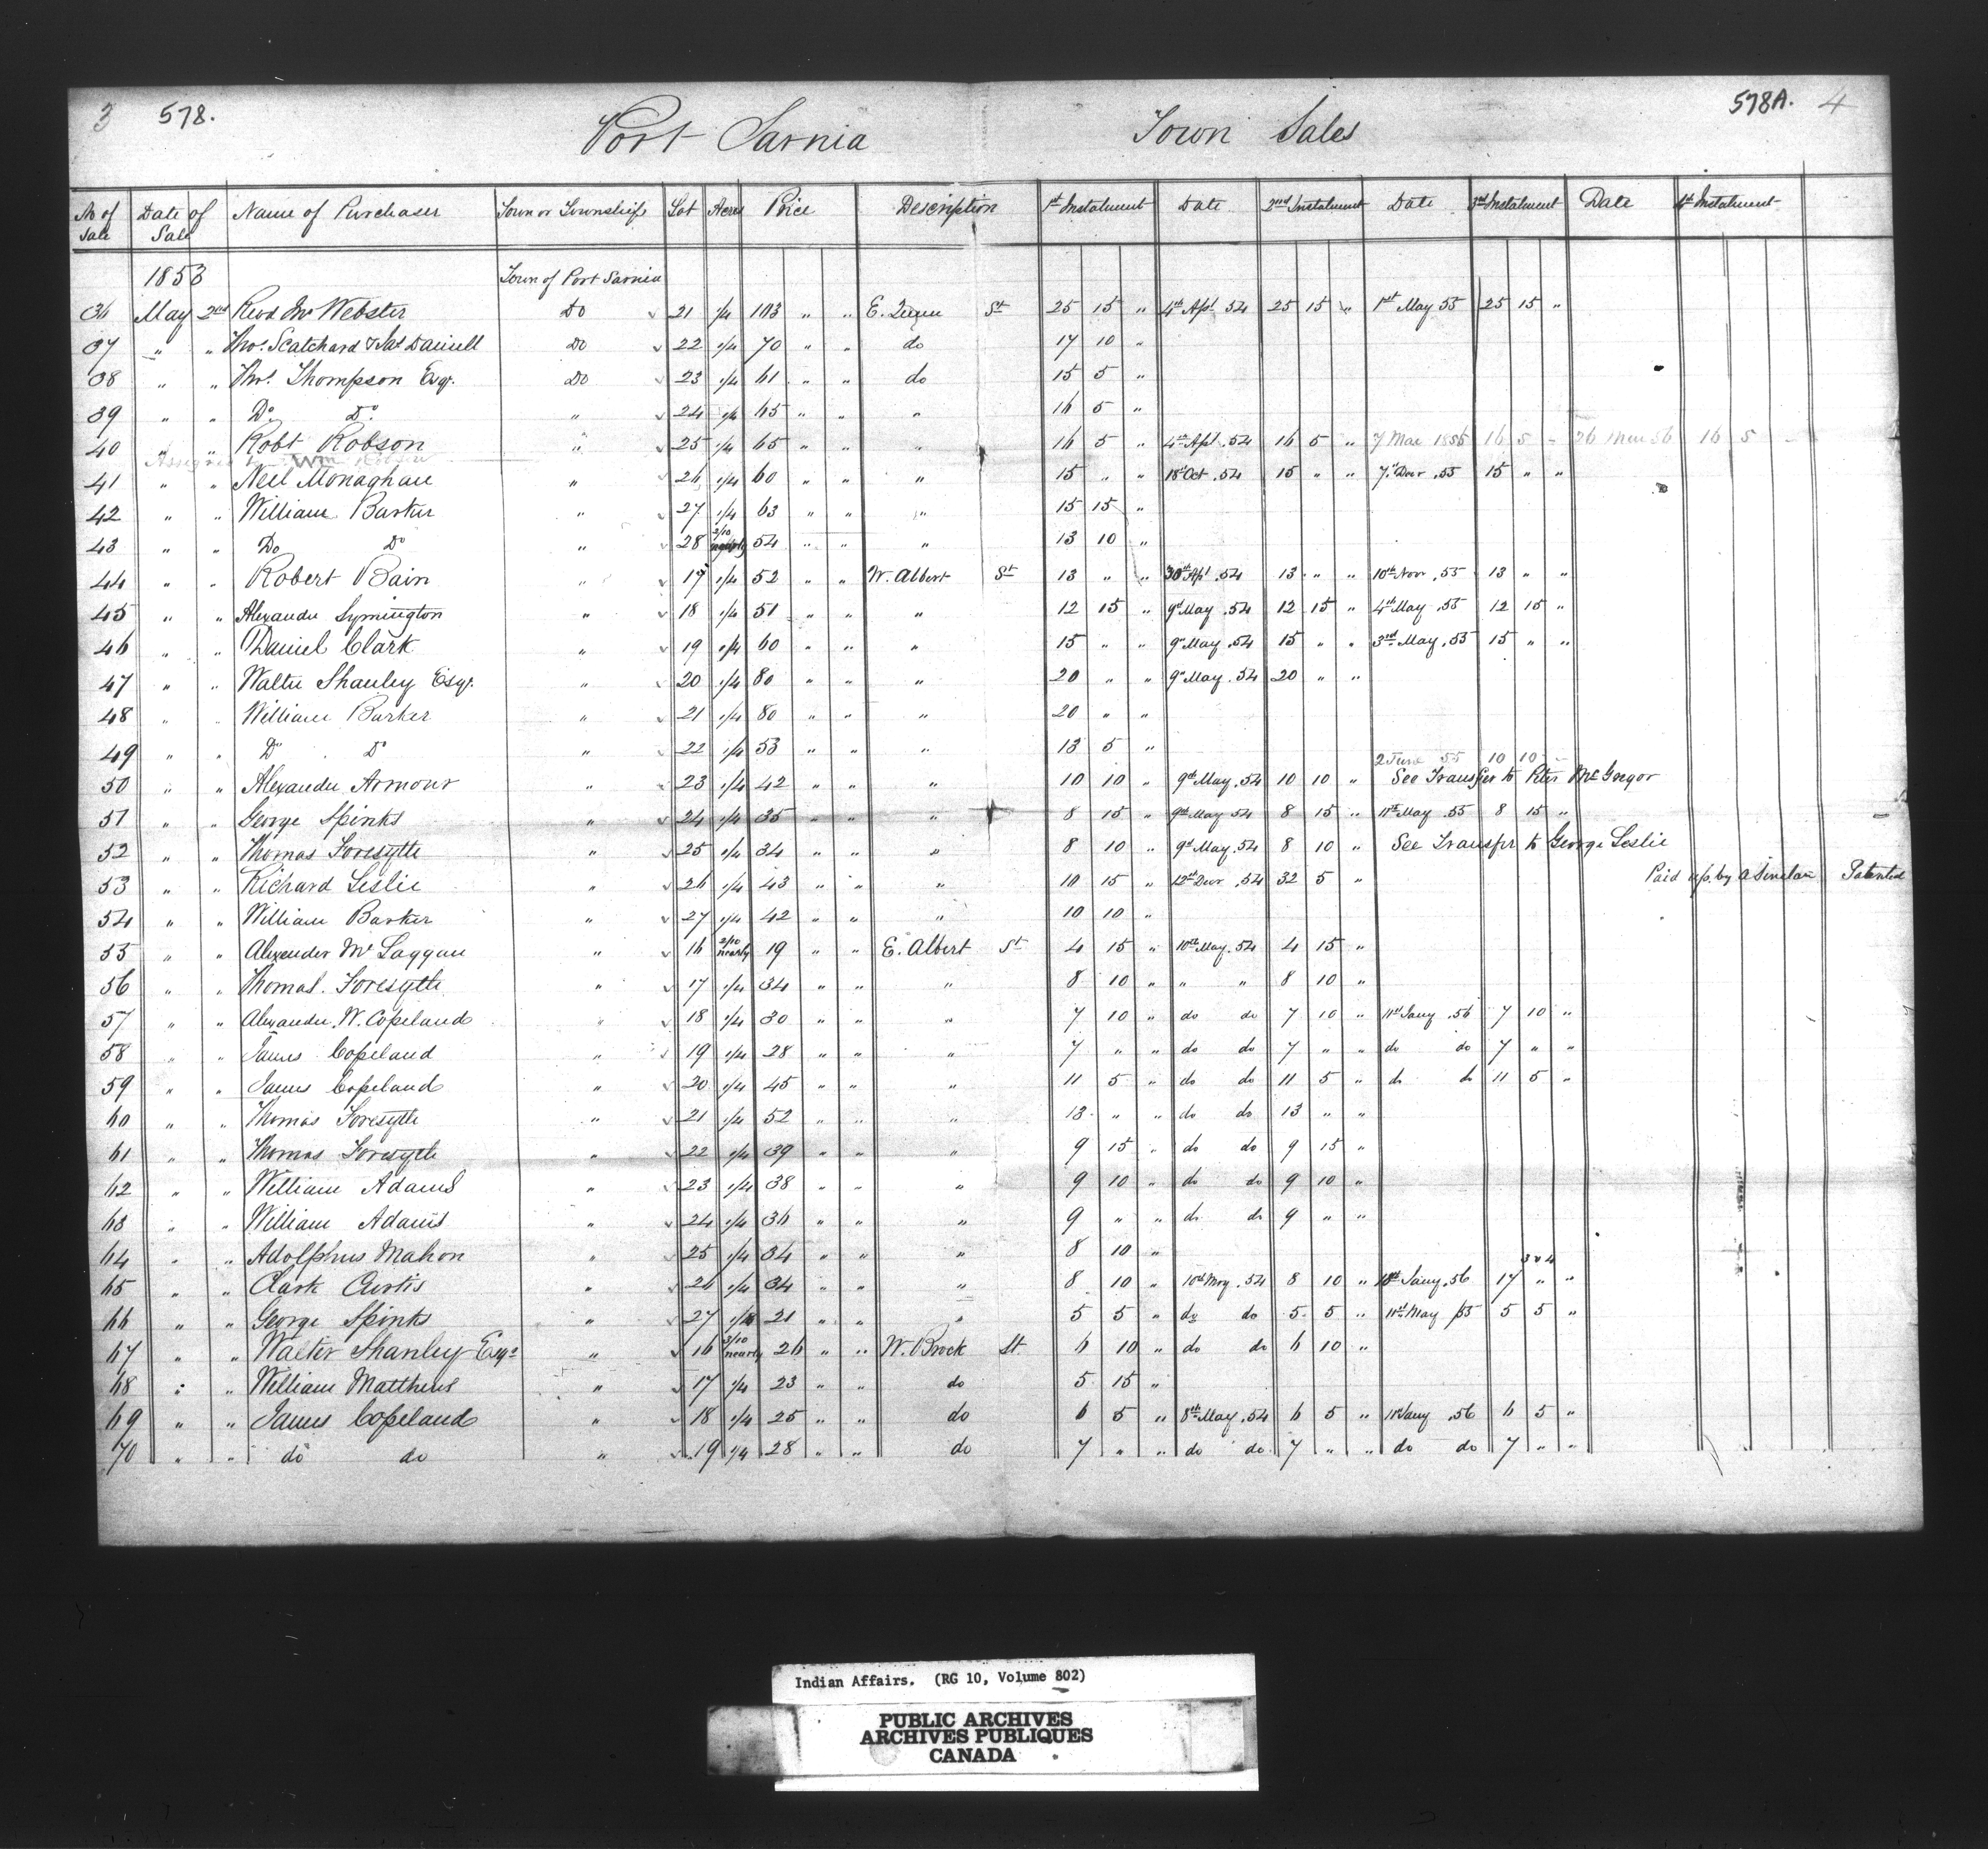 3 578. Port Sarnia Town Sales 578A. 4
No of Sale Date of Sale Name of Purchaser Town or Township Lot Acres Price Description 1st Instalment Date 2nd Instalment Date 3rd Instalment Date 4th Instalment
1853 Town of Port Sarnia
36 May 2nd Revd Mr Webster Do 21 1/4 103 " " E. Queen St 25 15 " 4th Apl. 54 25 15 " 1st May 55 25 15 "
37 " " Thos. Scatchard & Jas Daniell Do 22 1/4 70 " " do 17 10 "
38 " " Thos. Thompson Esqr. Do 23 1/4 61 " " do 15 5 "
39 " " Do. Do. " 24 1/4 65 " " " 16 5 "
40 " " Robt Robson " 25 1/4 65 " " " 16 5 " 4th Apl. 54 16 5 " 7 Mar 1855 16 5 - 26 Mar 56 16 5 -
Assigned to Wm
41 " " Neil Monaghan " 26 1/4 60 " " " 15 " " 18th Oct. 54 15 " " 7th Decr. 55 15 " "
42 " " William Barker " 27 1/4 63 " " " 15 15 "
43 " " Do Do " 28 2/10 nearly 54 " " " 13 10 "
44 " " Robert Bain " 17 1/4 52 " " W. Albert St 13 " " 30th Apl. 54 13 " " 10th Novr. 55 13 " "
45 " " Alexander Symington " 18 1/4 51 " " " 12 15 " 9th May. 54 12 15 " 4th May. 55 12 15 "
46 " " Daniel Clark " 19 1/4 60 " " " 15 " " 9th May. 54 15 " " 3rd May. 55 15 " "
47 " " Walter Shanley Esqr. " 20 1/4 80 " " " 20 " " 9th May. 54 20 " "
48 " " William Barker " 21 1/4 80 " " " 20 " "
49 " " Do Do " 22 1/4 53 " " " 13 5 "
2 June 55 10 10 -
50 " " Alexander Armour " 23 1/4 42 " " " 10 10 " 9th May. 54 10 10 " See Transfer to Peter McGregor
51 " " George Spinks " 24 1/4 35 " " " 8 15 " 9th May 54 8 15 " 11th May. 55 8 15 "
52 " " Thomas Forsyth " 25 1/4 34 " " " 8 10 " 9th May. 54 8 10 " See Transfer to George Leslie
53 " " Richard Leslie " 26 1/4 43 " " " 10 15 " 12th Decr. 54 32 5 " Paid up by A Sinclair Patented
54 " " William Barker " 27 1/4 42 " " " 10 10 "
55 " " Alexander McLaggan " 16 2/10 nearly 19 " " E. Albert St 4 15 " 10th May. 54 4 15 "
56 " " Thomas. Foresyth " 17 1/4 34 " " " 8 10 " " " 8 10 "
57 " " Alexander. W. Copeland " 18 1/4 30 " " " 7 10 " do do 7 10 " 11th Jany. 56 7 10 "
58 " " James Copeland " 19 1/4 28 " " " 7 " " do do 7 " " do do 7 " "
59 " " James Copeland " 20 1/4 45 " " " 11 5 " do do 11 5 " do do 11 5 "
60 " " Thomas Foresyth " 21 1/4 52 " " " 13 " " do do 13 " "
61 " " Thomas Foresyth " 22 1/4 39 " " " 9 15 " do do 9 15 "
62 " " William Adams " 23 1/4 38 " " " 9 10 " do do 9 10 "
63 " " William Adams " 24 1/4 36 " " " 9 " " do do 9 " "
64 " " Adolphus Mahon " 25 1/4 34 " " " 8 10 "
3 & 4
65 " " Clark Curtis " 26 1/4 34 " " " 8 10 " 10th May. 54 8 10 " 18th Jany. 56 17 " "
66 " " George Spinks " 27 21 " " " 5 5 " do do 5 5 " 11th May 55 5 5 "
67 " " Walter Shanley Esqr " 16 3/10 nearly 26 " " W. Brock St. 6 10 " do do 6 10 "
68 " " William Matthews " 17 1/4 23 " " do 5 15 "
69 " " James Copeland " 18 1/4 25 " " do 6 5 " 8th May. 54 6 5 " 11th Jany. 56 6 5 "
70 " " do do " 19 1/4 28 " " do 7 " " do do 7 " " do do 7 " "
Indian Affairs. (RG 10, Volume 802)
PUBLIC ARCHIVES
ARCHIVES PUBLIQUES
CANADA